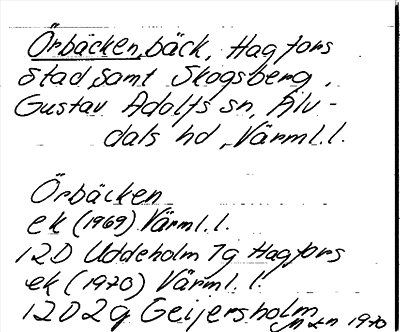 Örbäcken, bäck, Hagfors
stad, samt Skogsberg,
Gustav Adolfs sn, Älv-
dals hd, Värml. l.
Örbäcken
ek (1969) Värml. l.
12D Uddeholm 7g Hagfors
ek (1970) Värml. l.
12D2g Geijersholm
1970